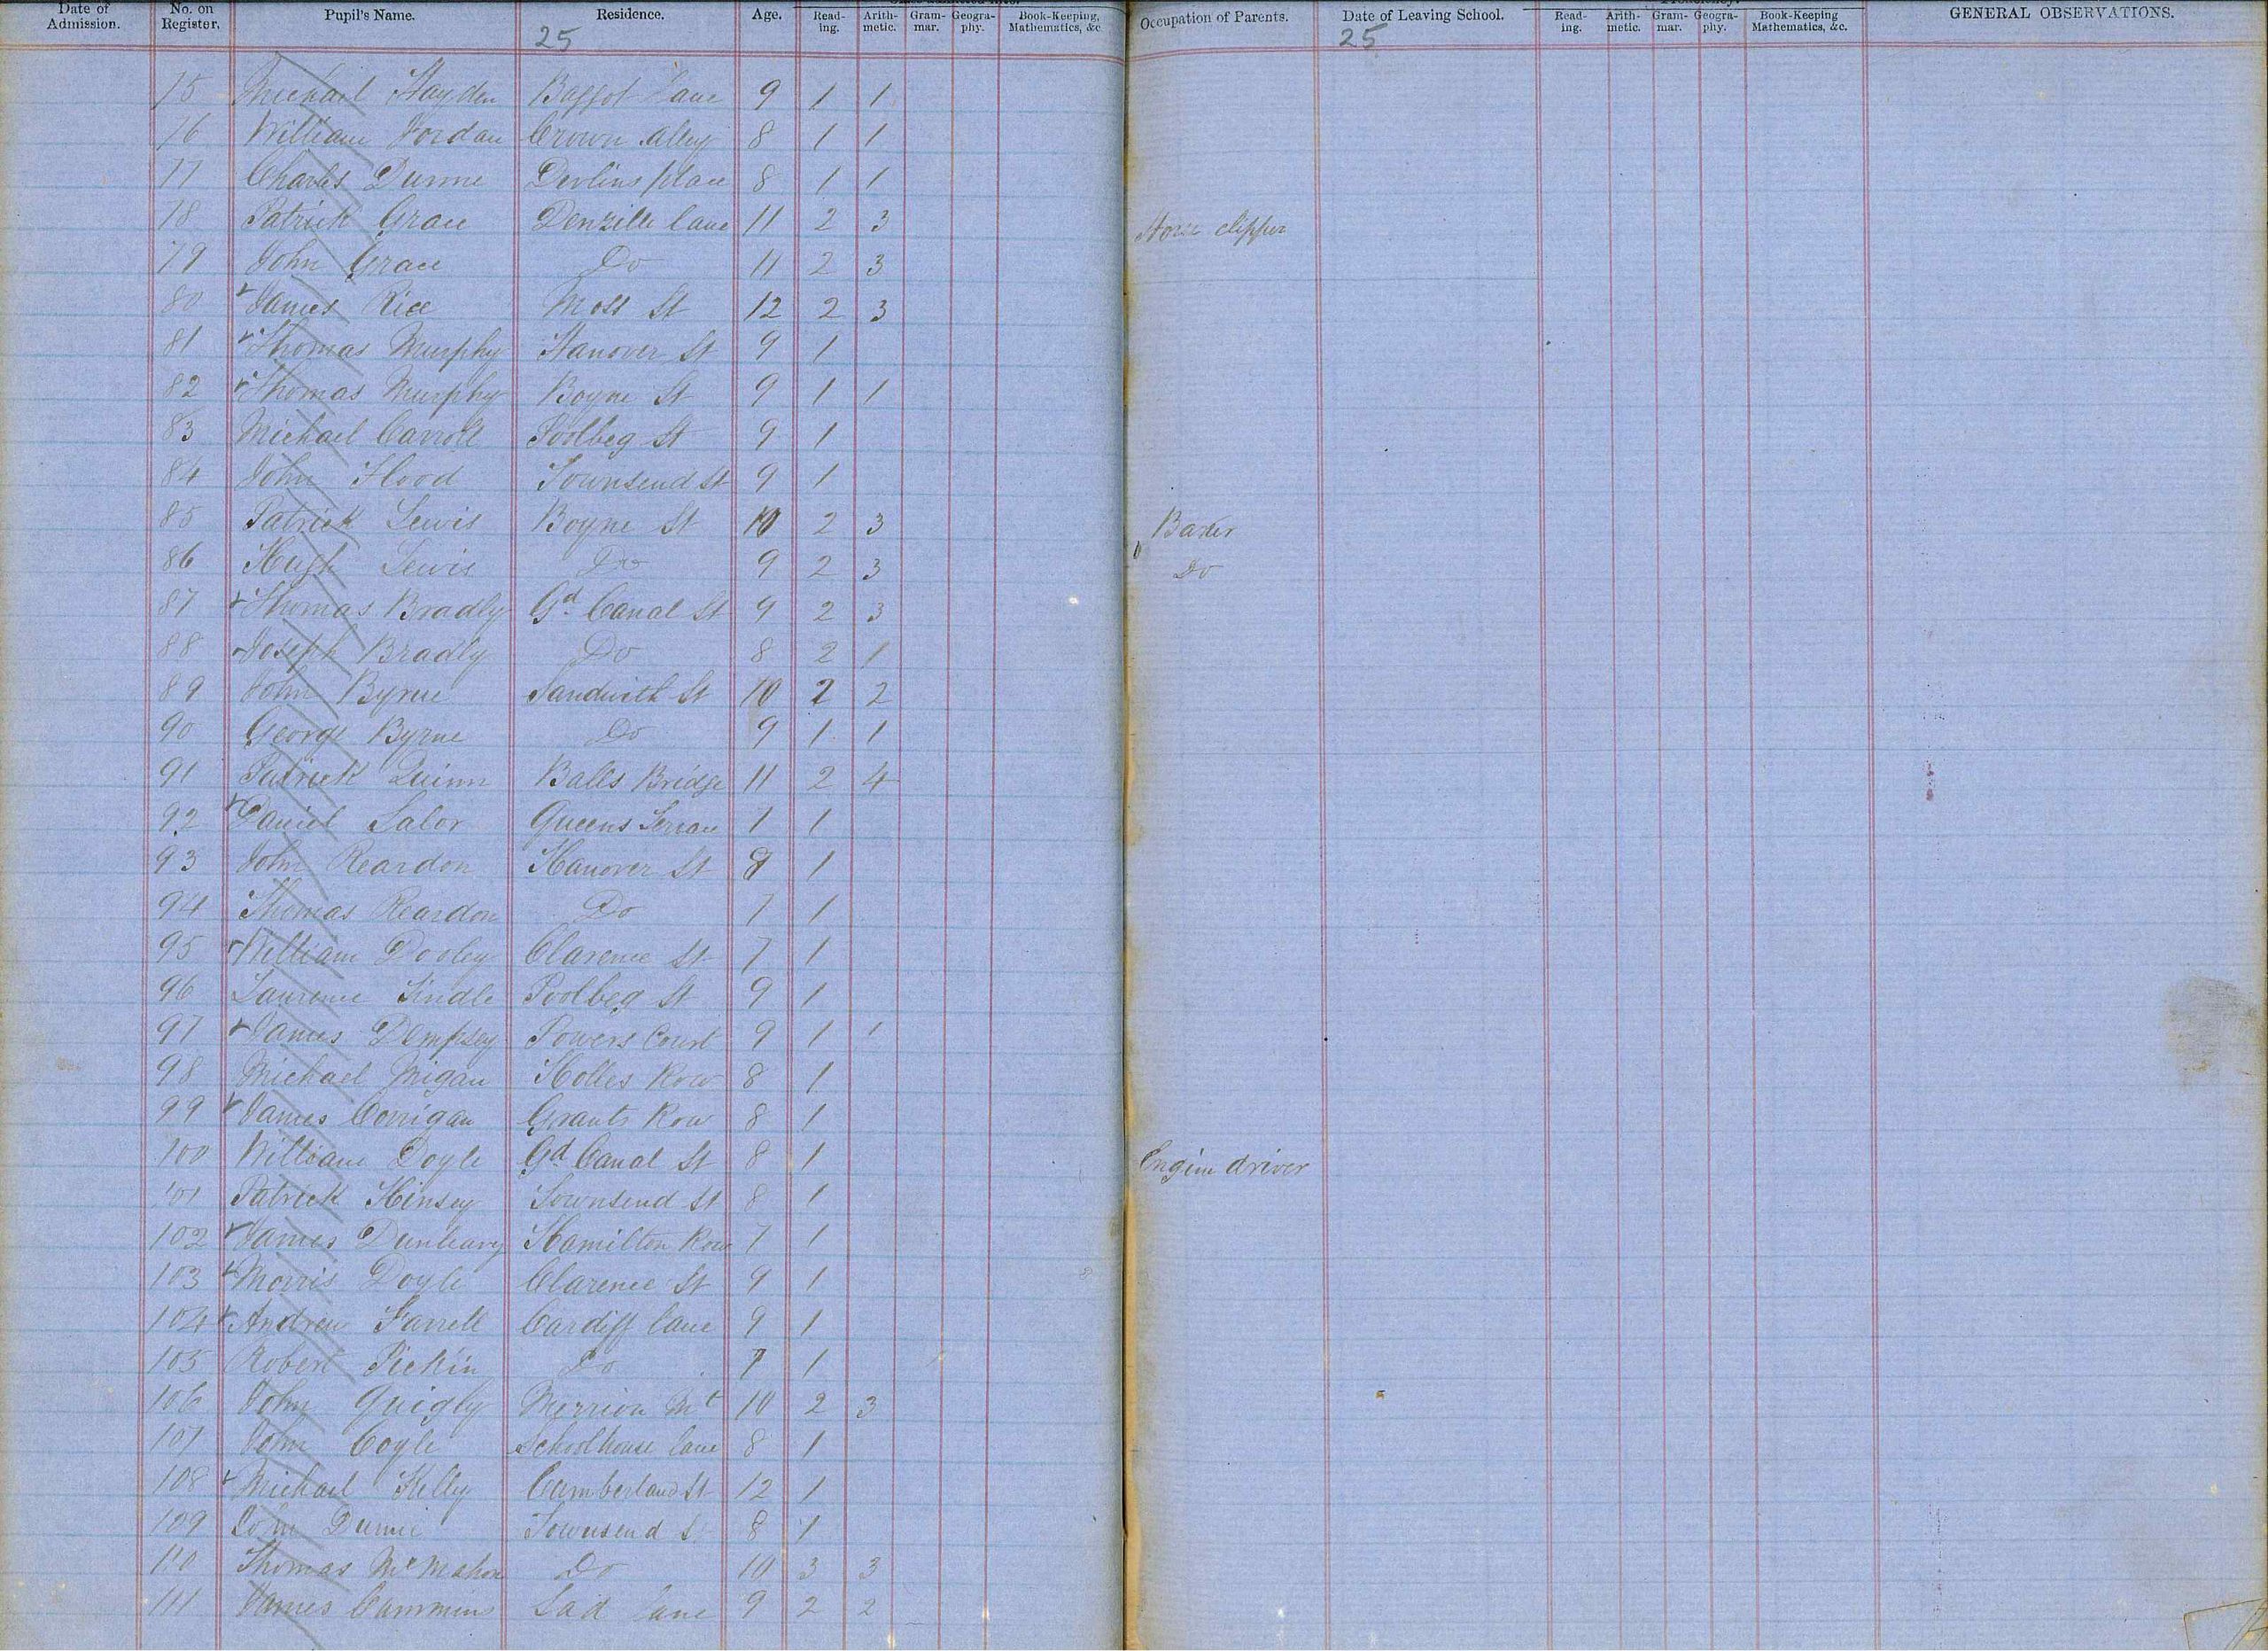 Date of Admission. No. on Register. Pupil's Name. Residence. Age. Read-ing. Arith-metic. Gram-mar. Geogra-phy. Book-Keeping, Mathematics, &c. Occupation of Parents. Date of Leaving School. Read-ing. Arith-metic. Gram-mar. Geogra-phy. Book-Keeping Mathematics, &c. GENERAL OBSERVATIONS.
25 25
75 Michael Hayden Baggot Lane 9 1 1
76 William Jordan Crown Alley 8 1 1
77 Charles Dunne Devlins place 8 1 1
78 Patrick Grace Denzille lane 11 2 3 Horse clipper
79 John Grace Do 11 2 3
80 James Rice Moss St 12 2 3
81 Thomas Murphy Hanover St 9 1
82 Thomas Murphy Boyne St 9 1 1
83 Michael Carroll Poolbeg St 9 1
84 John Flood Townsend St 9 1
85 Patrick Lewis Boyne St 10 2 3 Baker
86 Hugh Lewis Do 9 2 3 Do
87 Thomas Bradly Gd Canal St 9 2 3
88 Joseph Bradly Do 8 2 1
89 John Byrne Sandwith St 10 2 2
90 George Byrne Do 9 1 1
91 Patrick Quinn Balls Bridge 11 2 4
92 Daniel Lalor Queens Terrace 7 1
93 John Reardon Hanover St 8 1
94 Thomas Reardon Do 7 1
95 William Dooley Clarence St 7 1
96 Laurence Tindle Poolbeg St 9 1
97 James Dempsey Powers Court 9 1 1
98 Michael Migan Holles Row 8 1
99 James Corrigan Grants Row 8 1
100 William Doyle Gd Canal St 8 1 Engine driver
101 Patrick Hinsey Townsend St 8 1
102 James Dunleavy Hamilton Row 7 1
103 Morris Doyle Clarence St 9 1
104 Andrew Farrell Cardiff lane 9 1
105 Robert Pickin Do 7 1
106 John Quigly Merrion Mt 10 2 3
107 John Coyle Schoolhouse lane 8 1
108 Michael Kelly Cumberland St 12 1
109 John Dunne Townsend St 8 1
110 Thomas McMahon Do 10 3 3
111 James Cummins Lad lane 9 2 2